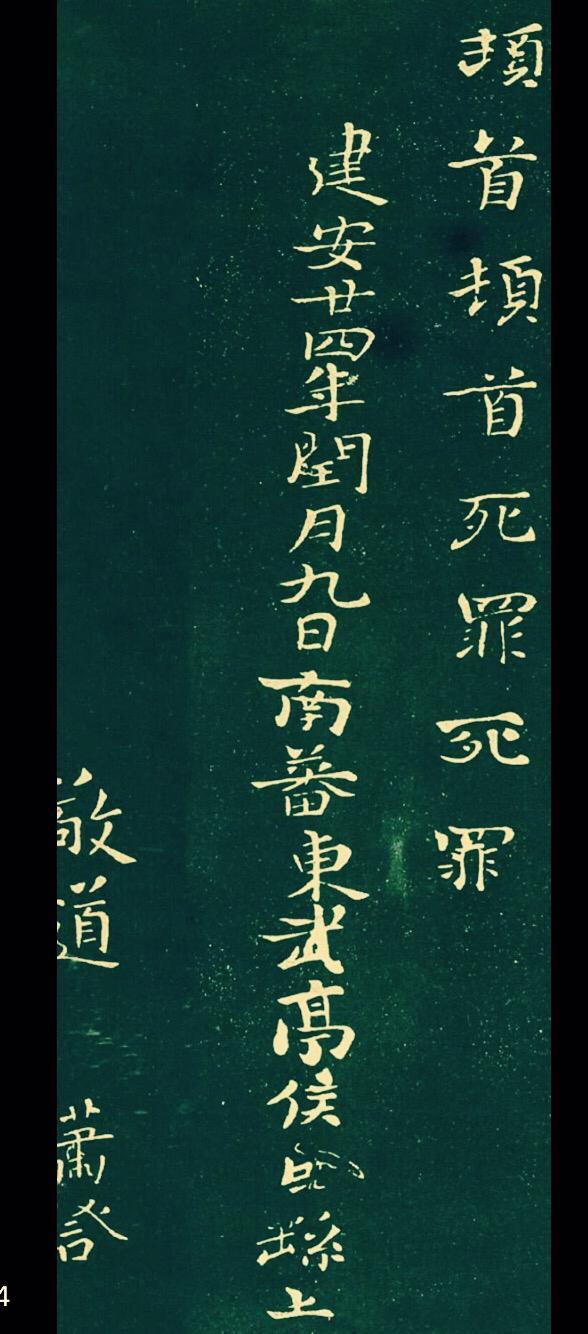 頓首頓首死罪死罪
建安廿四年閏月九日南蕃東武亭侯繇上
道 蕭
4